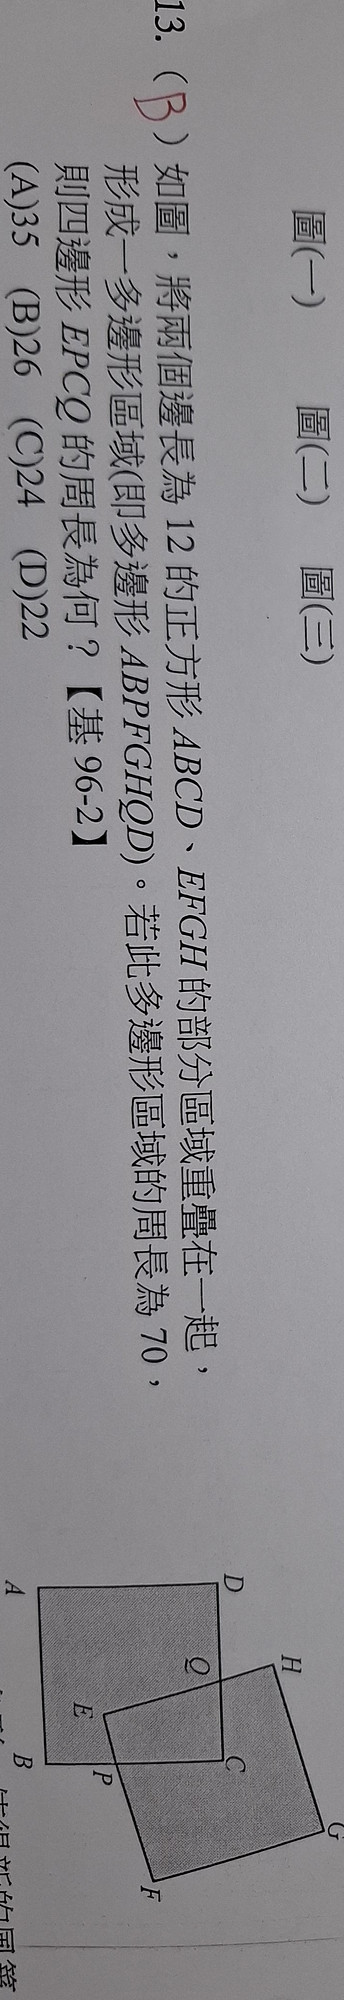 圖(一) 圖(二) 圖(三)
13. ( B ) 如圖，將兩個邊長為 12 的正方形 ABCD、EFGH 的部分區域重疊在一起，
形成一多邊形區域(即多邊形 ABPFGHQD)。若此多邊形區域的周長為 70，
則四邊形 EPCQ 的周長為何？【基 96-2】
(A)35 (B)26 (C)24 (D)22
D
H
G
Q
C
E
P
F
A
B